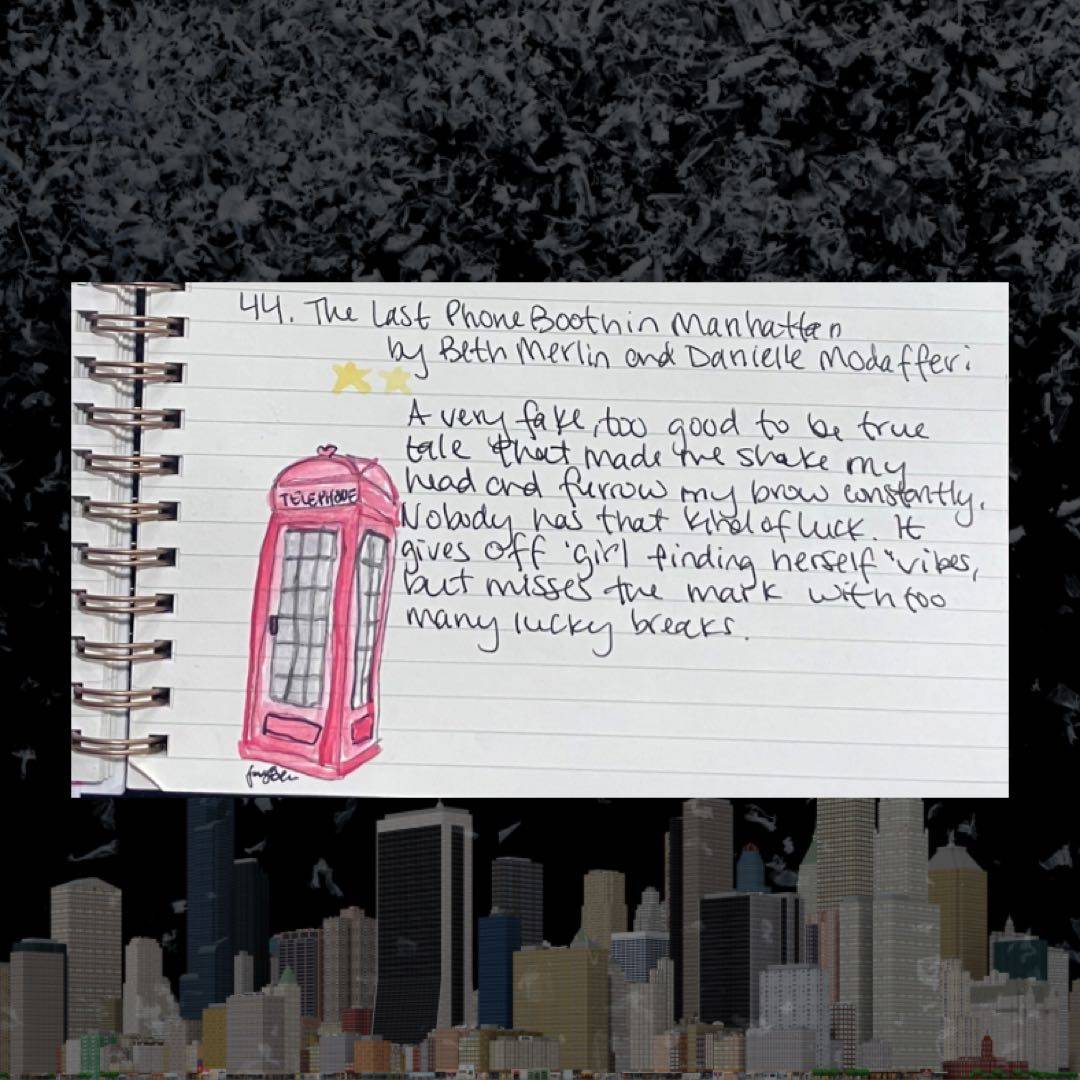 44. The Last Phone Booth in Manhattan
by Beth Merlin and Danielle Modafferi
A very fake, too good to be true
tale that made me shake my
head and furrow my brow constantly.
TELEPHONE
Nobody has that kind of luck. It
gives off "girl finding herself" vibes,
but misses the mark with too
many lucky breaks.